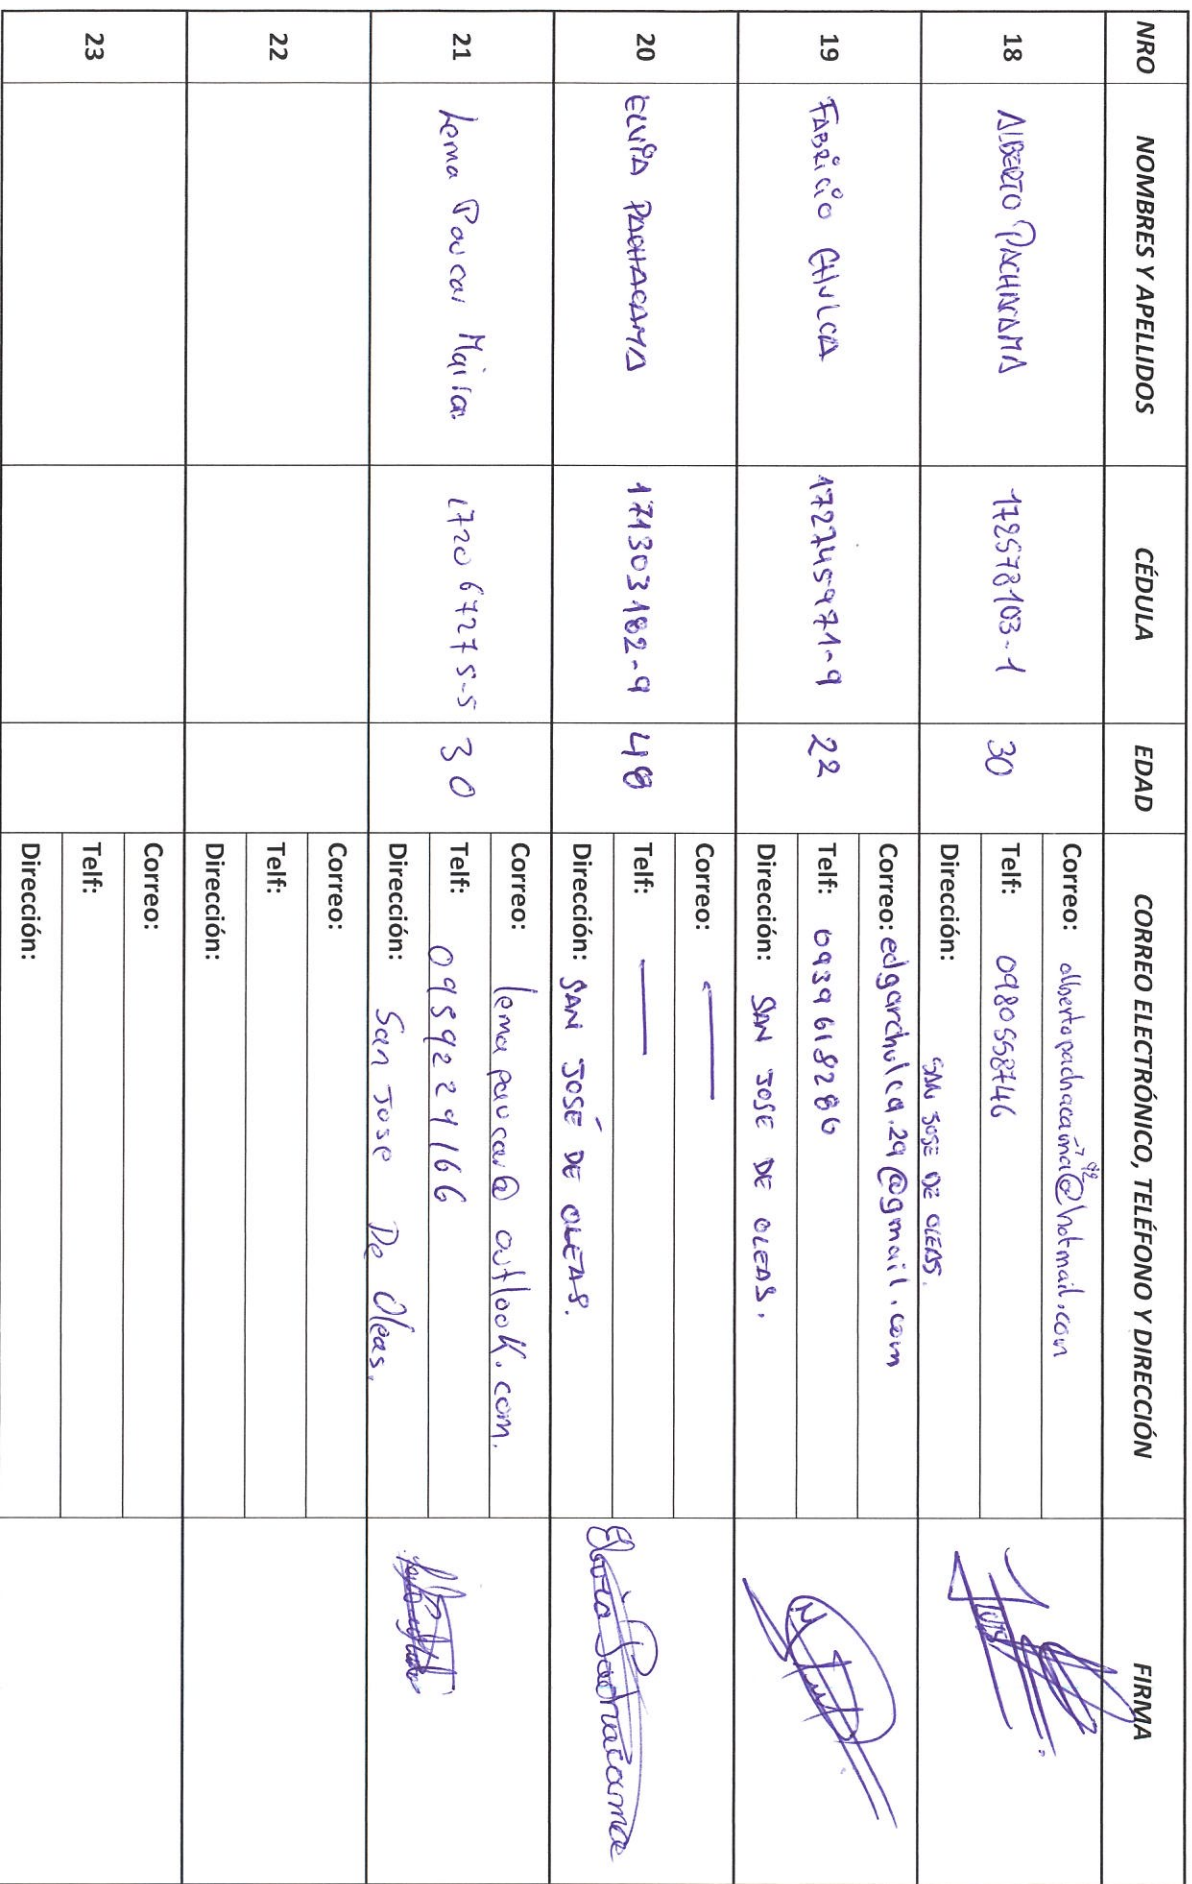 NRO NOMBRES Y APELLIDOS CÉDULA EDAD CORREO ELECTRÓNICO, TELÉFONO Y DIRECCIÓN FIRMA
18 ALBERTO PACHACAMA 172578103-1 30
Correo: albertopachacama_92@hotmail.com
Telf: 0980558746
Dirección: SAN JOSE DE OLEAS.
19 FABRICIO CHULCA 172745971-9 22
Correo: edgarchulca.29@gmail.com
Telf: 0939618286
Dirección: SAN JOSE DE OLEAS.
20 ELVIA PACHACAMA 171303182-9 48
Correo: —
Telf: —
Dirección: SAN JOSÉ DE OLEAS.
Elvia Pachacama
21 Lema Paucar Maira 172067275-5 30
Correo: lemapaucar@outlook.com.
Telf: 0959229166
Dirección: San Jose De Oleas.
22
Correo:
Telf:
Dirección:
23
Correo:
Telf:
Dirección: